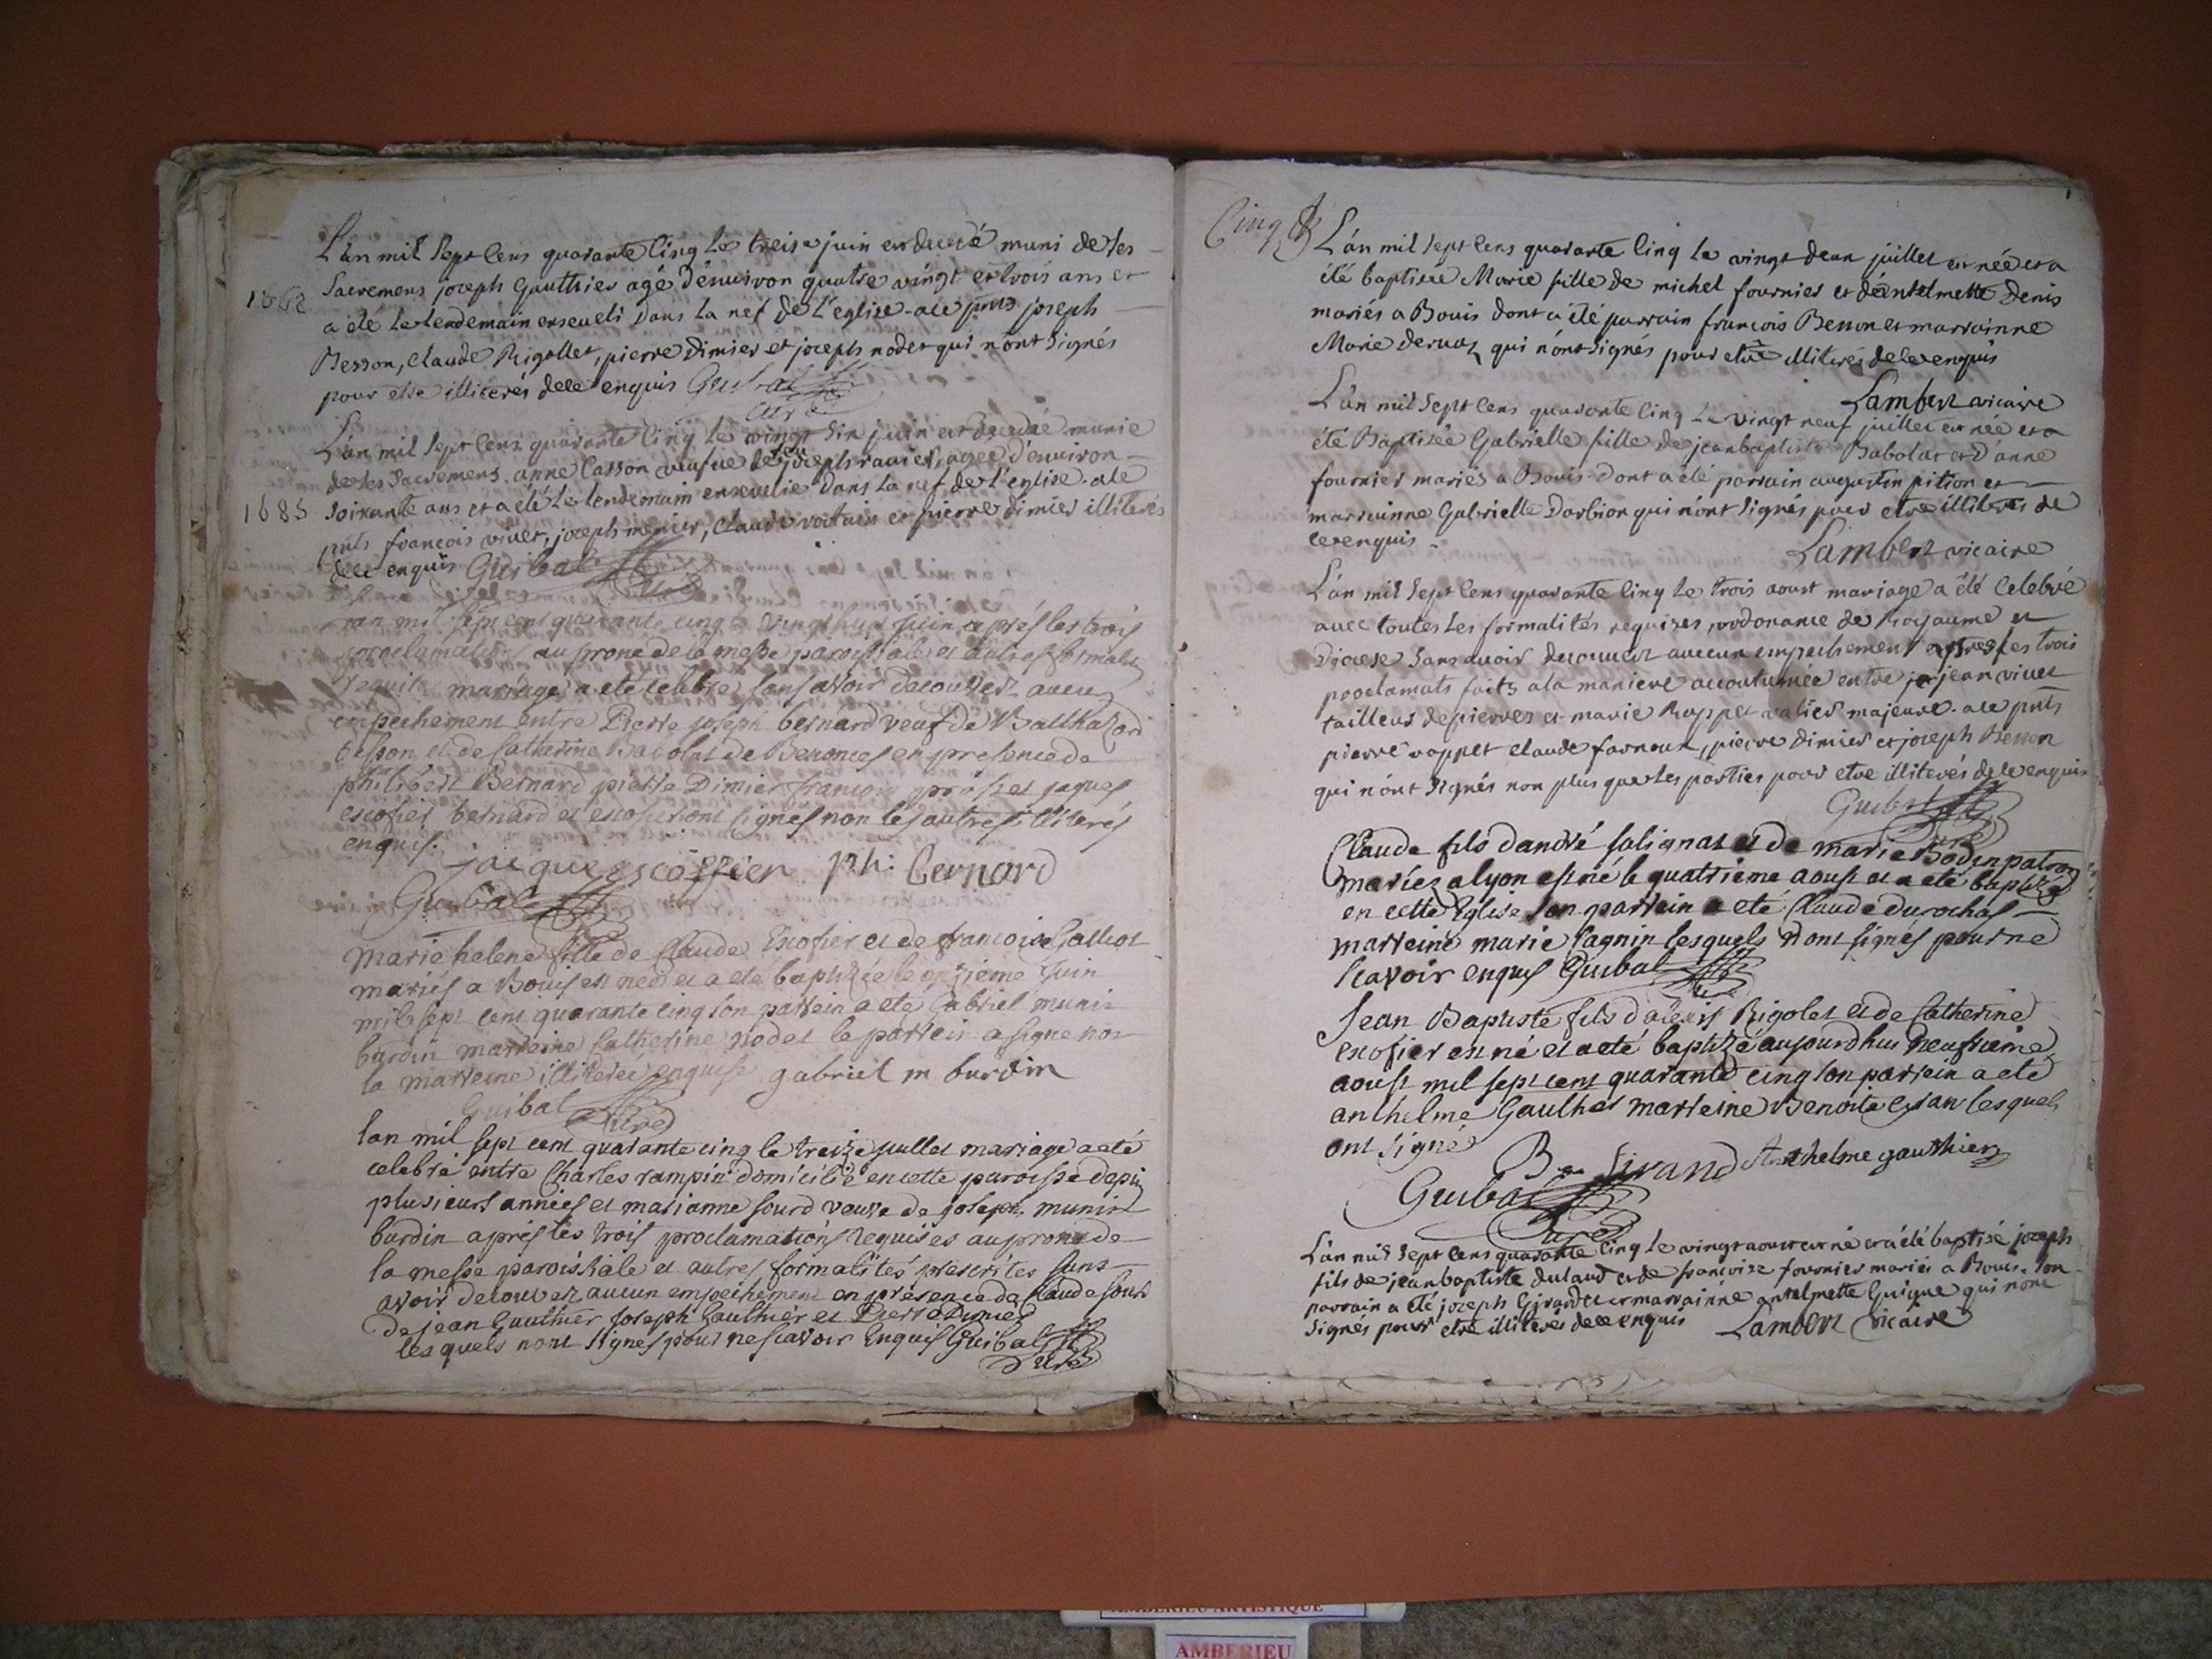 L'an mil sept cens quarante cinq le treise juin est decedé muni de ses
sacremens joseph Gauthier agé d'environ quatre vingt et trois ans et
a été le lendemain enseveli dans la nef de l'eglise ace pnts joseph
Besson, claude Rigollet, pierre dimier et joseph nodet qui n'ont signés
pour etre illiterés de ce enquis Guibal
curé
1662
L'an mil sept cens quarante cinq le vingt six juin est decedée munie
de ses sacremens anne Casson veufve de feu joseph ravier, agée d'environ
soixante ans et a été le lendemain ensevelie dans la nef de l'eglise ace
pnts françois vivet, joseph menier, claude et pierre dimier illiterés
de ce enquis Guibal
curé
1685
lan mil sept cent quarante cinq le vingt huit juin aprés les trois
proclamations au prone de la messe paroissiale et autres formalités
requises mariage a eté celebré sans avoir decouvert aucun
empechement entre Pierre joseph bernard veuf De Balthazard
besson et de Catherine Babolat de Benonces en presence de
philibert Bernard pierre Dimier francois et jaques
escofier bernard et escofier ont signés non les autres illiterés
enquis.
jacque escoffier ph: bernard
Guibal
curé
marie helene fille de Claude Escofier et de francoise Galliot
mariés a Bouis est née et a eté baptizée le onzieme juin
mil sept cent quarante cinq son parrein a eté Gabriel munir
burdin marreine Catherine nodet le parrein a signé non
la marreine illiterée enquise gabriel m burdin
Guibal
Curé
lan mil sept cent quarante cinq le treize juillet mariage a eté
celebré entre Charles rampin domicilié en cette paroisse depuis
plusieurs années et marianne sourd veuve de joseph munir
burdin aprés les trois proclamations requises au prone de
la messe paroissiale et autres formalités prescrites sans
avoir decouvert aucun empechement en presence de Claude sourd
de jean Gauthier joseph Gauthier et Pierre Dimier
lesquels nont signés pour ne scavoir Enquis Guibal
Curé
Cinq
L'an mil sept cens quarante cinq le vingt deux juillet est née et a
été baptisée Marie fille de michel fournier et d'entelmette Denis
mariés a Bouis dont a été parrain françois Besson et marrainne
Marie dervaz qui n'ont signés pour etre illiterés de ce enquis
Lambert vicaire
L'an mil sept cens quarante cinq le vingt neuf juillet est née et a
été Baptisée Gabrielle fille de jean baptiste Babolat et d'anne
fournier mariés a Bouis dont a été parrain augustin pition et
marrainne Gabrielle Dorbion qui n'ont signés pour etre illiterés de
ce enquis
Lambert vicaire
L'an mil sept cens quarante cinq le trois aoust mariage a été celebré
avec toutes les formalités requises, ordonance de Royaume et
Diocese sans avoir decouvert auccun empechement apres les trois
proclamats faits a la maniere accoutumée entre jean vivet
tailleur de pierres et marie Roppet valier majeure ace pnts
pierre roppet claude farnoux, pierre dimier et joseph Besson
qui n'ont signés non plus que les parties pour etre illiterés de ce enquis
Guibal
Curé
Claude fils dandré salignat et de marie Bodin patron
mariez a lyon est né le quatrieme aoust et a eté baptizé
en cette Eglise son parrein a eté Claude durochat
marreine marie Cagnin lesquels n'ont signés pour ne
scavoir enquis Guibal
Curé
Jean Baptiste fils d'alexis Rigolet et de Catherine
escofier est né et a eté baptizé aujourdhui neufvieme
aoust mil sept cent quarante cinq son parrein a eté
anthelme Gauthier marreine Benoite lesquels
ont signé
B Sirand Anthelme gauthier
Guibal
Curé
L'an mil sept cens quarante cinq le vingt aoust est né et a été baptisé joseph
fils de jean baptiste dulaud et de françoise fournier mariés a Bouis. son
parrain a été joseph Girardet et marrainne antelmette Guigue qui n'ont
signés pour etre illiterés de ce enquis Lambert vicaire
AMBERIEU ARTISTIQUE
AMBERIEU